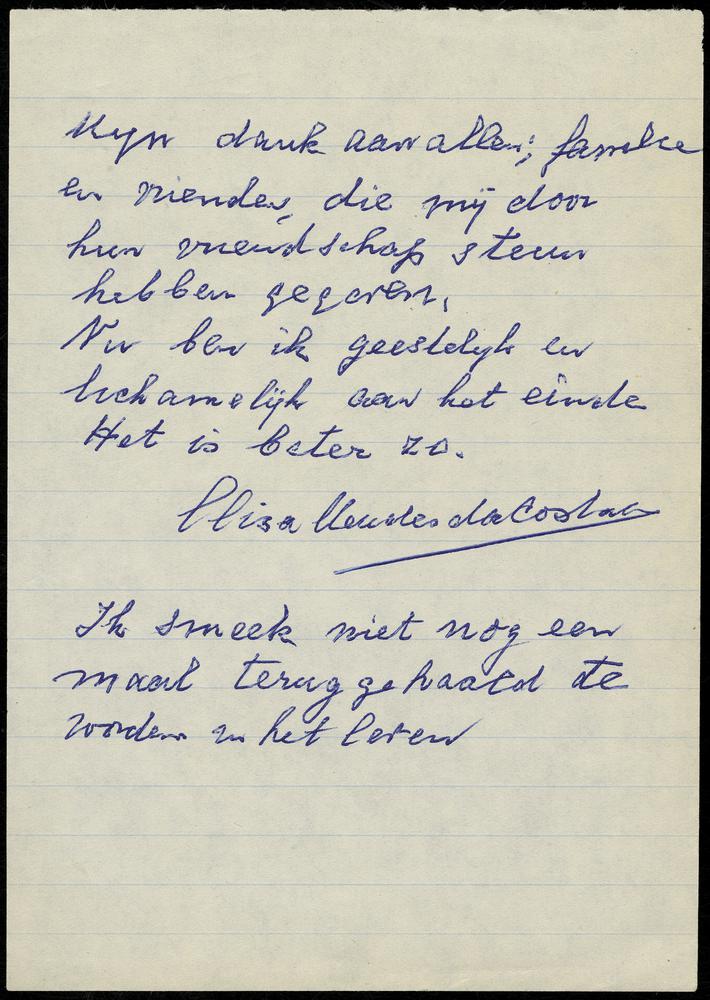 Myn dank aan allen; familie
en vrienden, die mij door
hun vriendschap steun
hebben gegeven.
Nu ben ik geestelyk en
lichamelijk aan het einde
Het is beter zo.
Eliza Mendes da Costa
Ik smeek niet nog een
maal terug gehaald te
worden in het leven